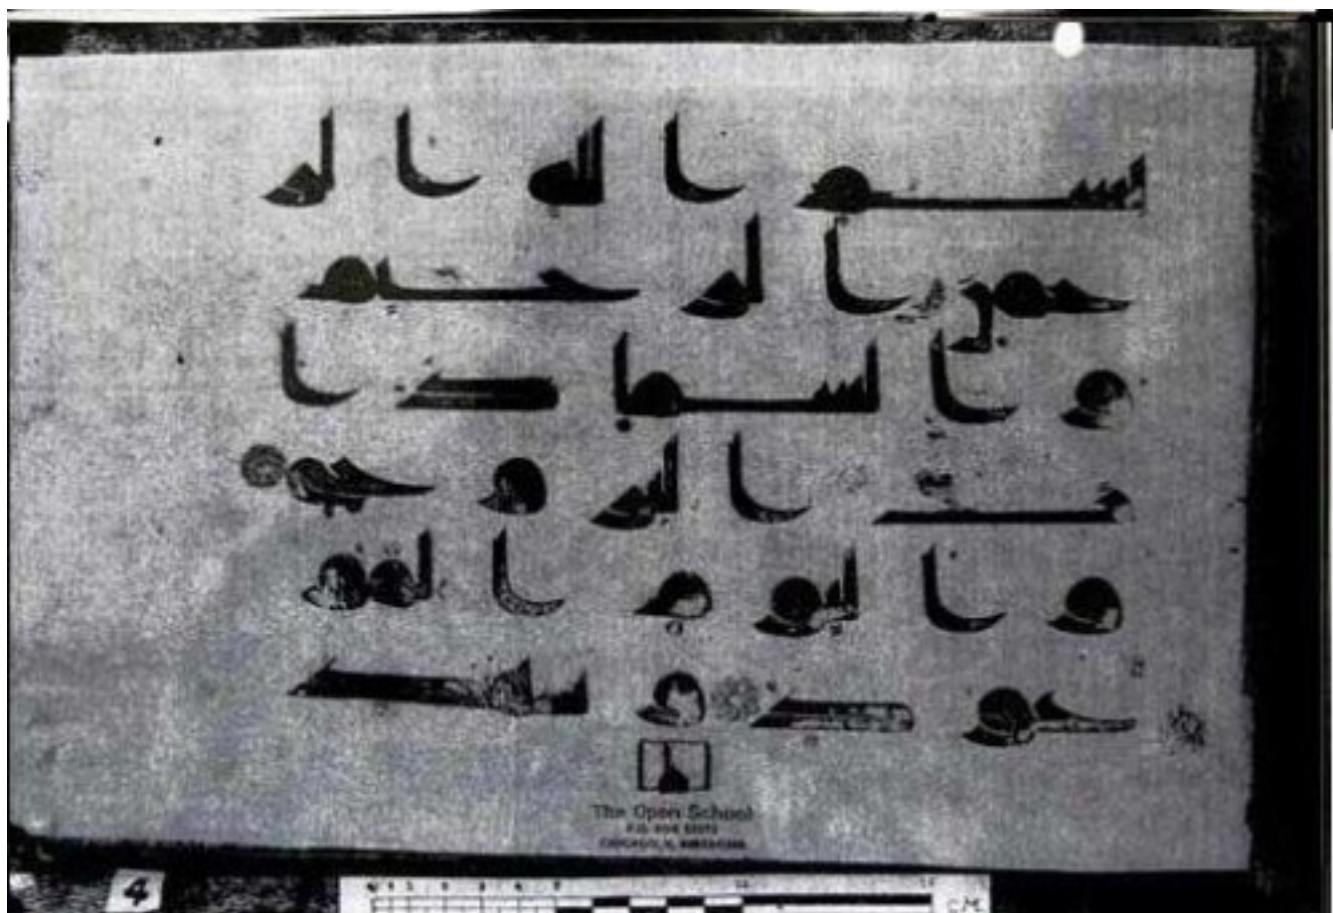 بسم الله الر
حمن الرحيم
والسما ذا
ت البروج
واليوم المو
عود وشهد
The Open School
4
CM